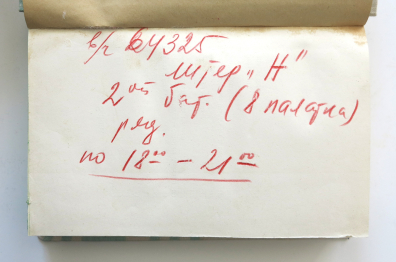 в/ч 64325
литер „Н"
2ой бат. (8 палатка)
ряд.
по 18⁰⁰ – 21⁰⁰